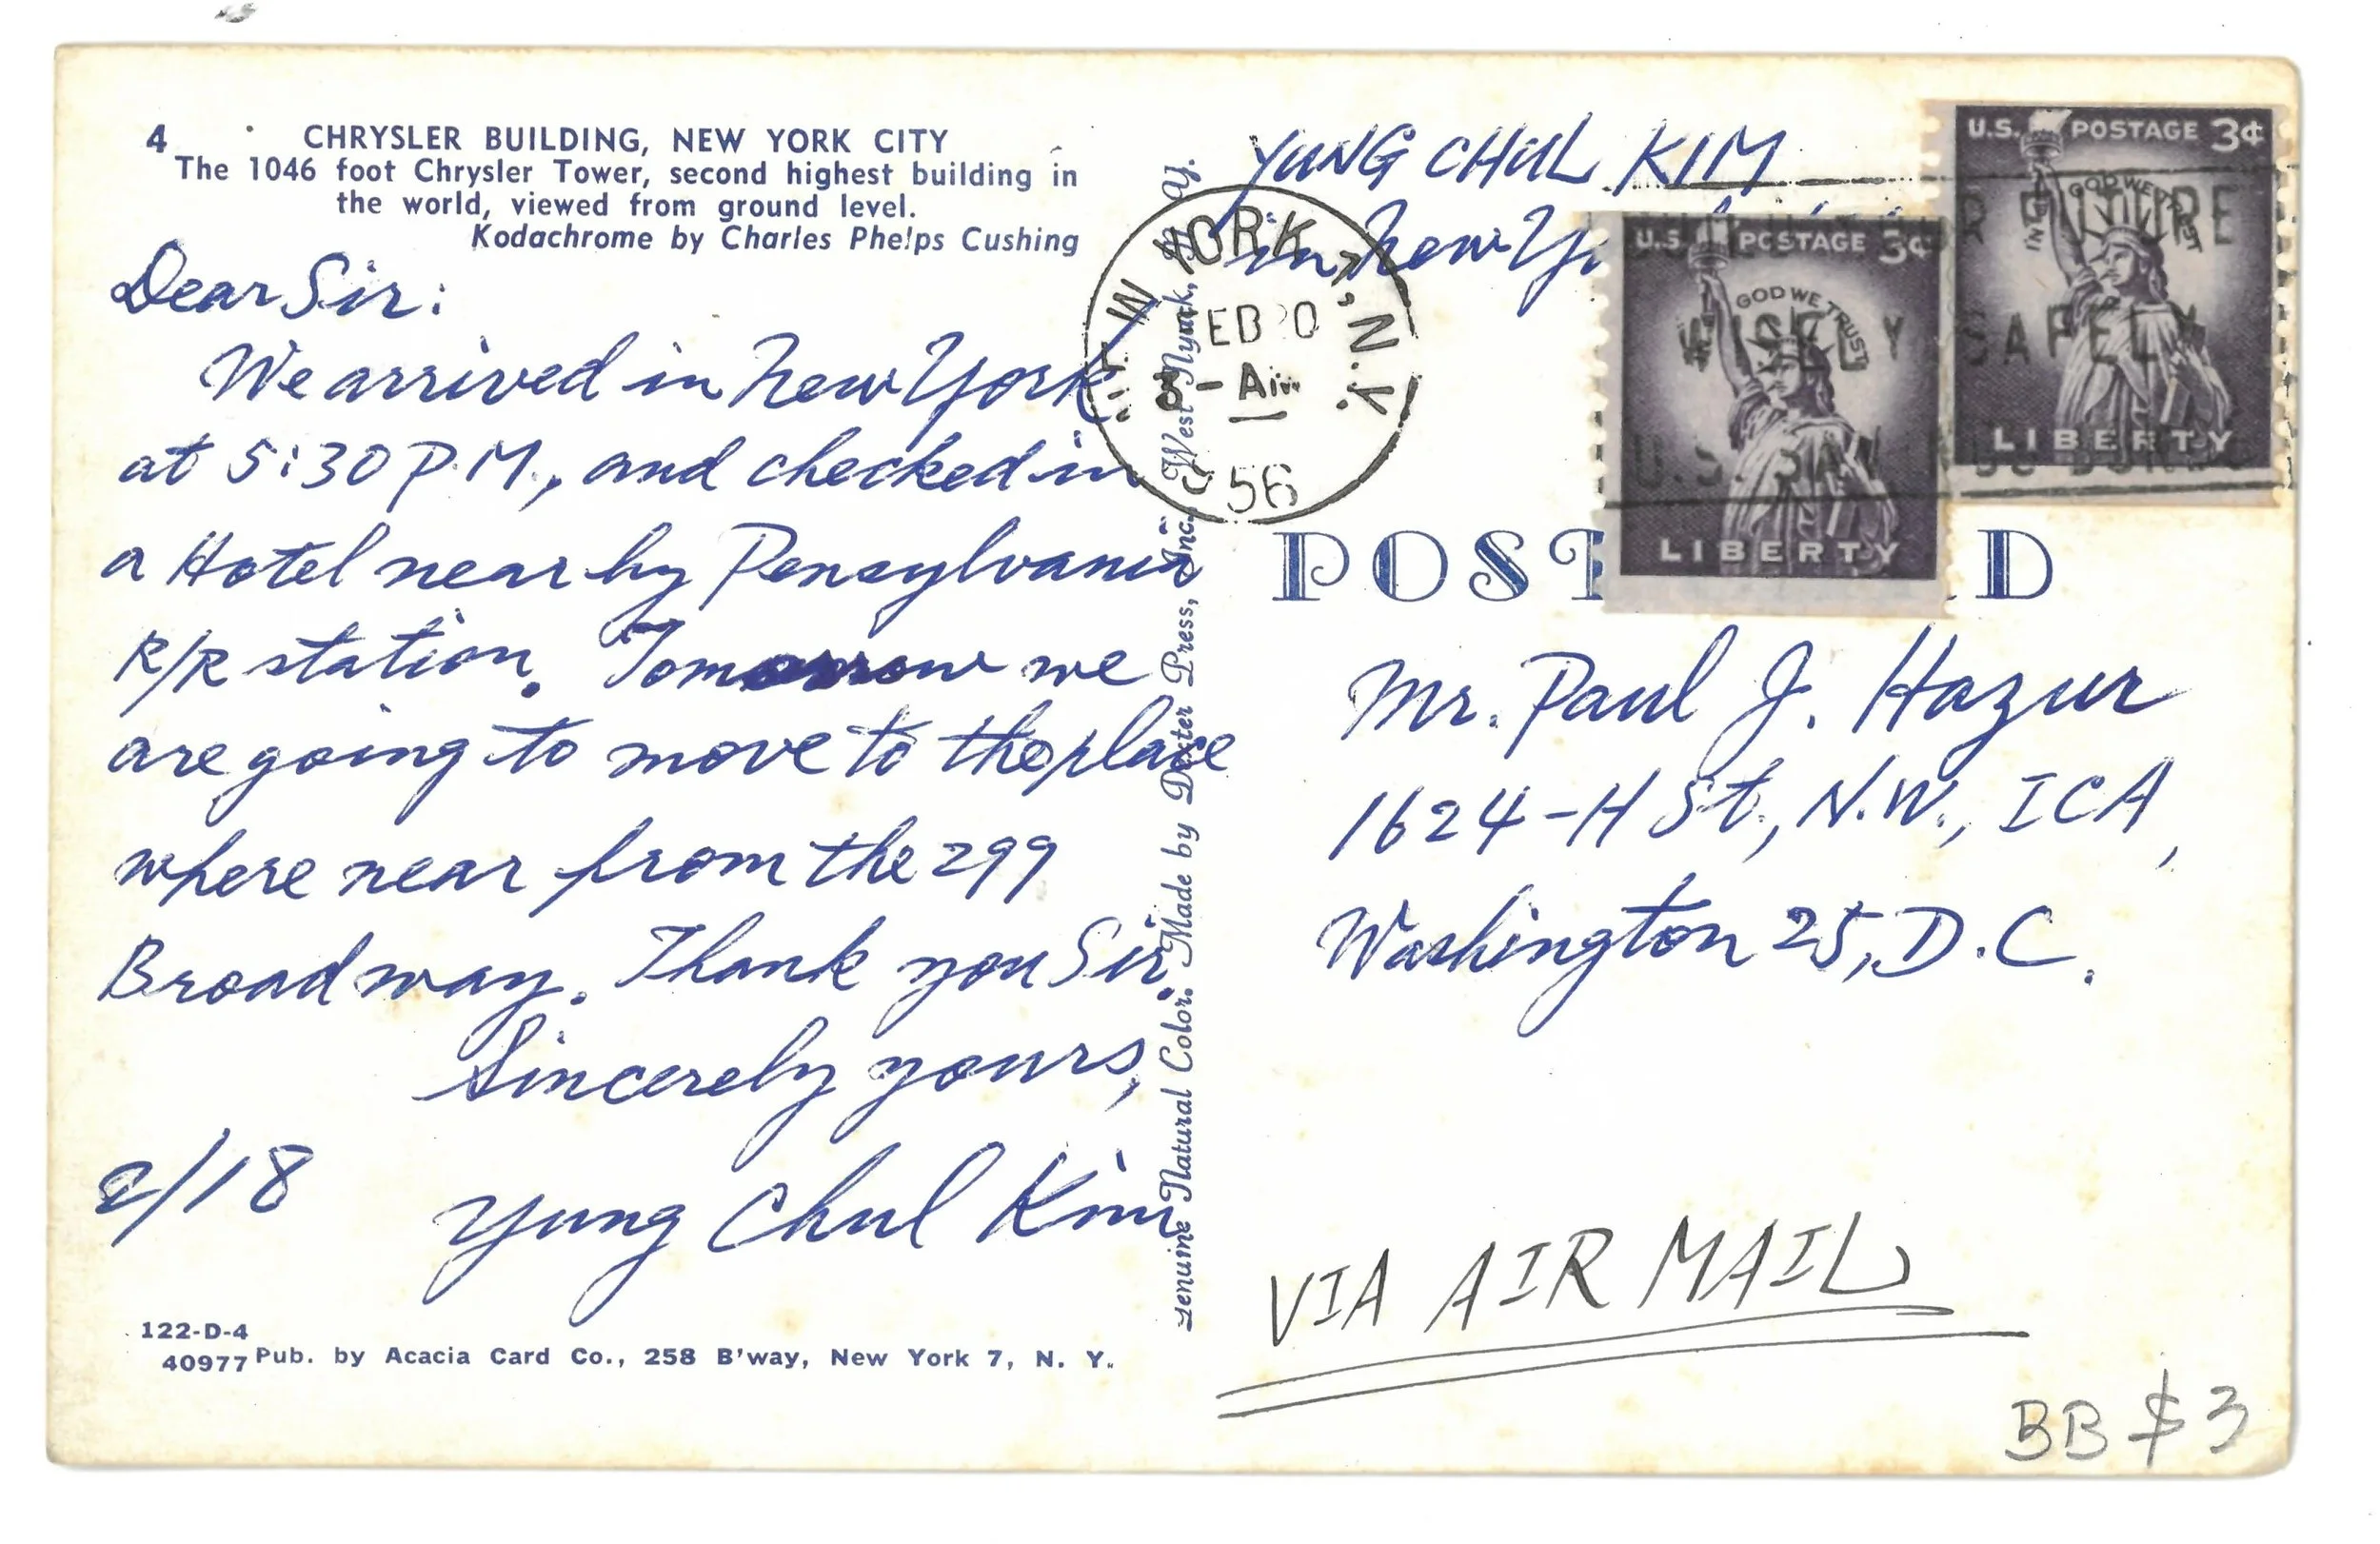 4 CHRYSLER BUILDING, NEW YORK CITY
The 1046 foot Chrysler Tower, second highest building in
the world, viewed from ground level.
Kodachrome by Charles Phelps Cushing
Dear Sir:
We arrived in New York
at 5:30 P.M., and checked in
a Hotel near by Pensylvania
R/R station. Tomorrow we
are going to move to the place
where near from the 299
Broadway. Thank you Sir.
Sincerely yours,
2/18 Yung Chul Kim
122-D-4
40977 Pub. by Acacia Card Co., 258 B'way, New York 7, N. Y.
Genuine Natural Color. Made by Dexter Press, Inc. West Nyack, N. Y.
YUNG CHUL KIM
in New
YORK, N.Y.
3-AM
56
U.S. POSTAGE 3¢
IN GOD WE TRUST
LIBERTY
U.S. POSTAGE 3¢
GOD WE TRUST
LIBERTY
WISELY SAFELY
U.S.
POST D
Mr. Paul J. Hazur
1624-H St., N.W., ICA,
Washington 25, D.C.
VIA AIR MAIL
BB $3